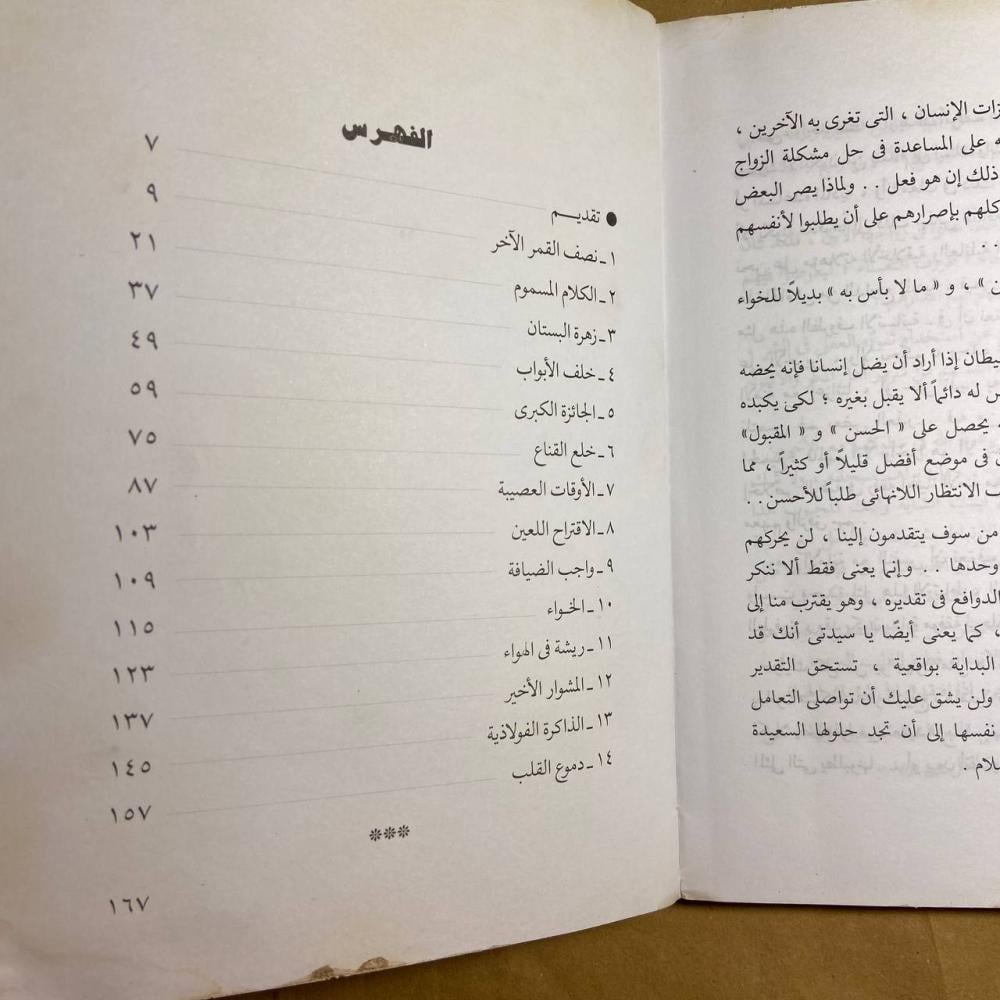 زات الإنسان ، التى تغرى به الآخرين ،
ه على المساعدة فى حل مشكلة الزواج
ذلك إن هو فعل . . ولماذا يصر البعض
كلهم بإصرارهم على أن يطلبوا لأنفسهم
. .
ن » ، و « ما لا بأس به » بديلاً للخواء
يطان إذا أراد أن يضل إنسانا فإنه يحضه
س له دائماً ألا يقبل بغيره ؛ لكى يكبده
ه يحصل على « الحسن » و « المقبول»
ن فى موضع أفضل قليلاً أو كثيراً ، مما
ب الانتظار اللانهائى طلباً للأحسن . .
من سوف يتقدمون إلينا ، لن يحركهم
وحدها . . وإنما يعنى فقط ألا ننكر
الدوافع فى تقديره ، وهو يقترب منا إلى
، كما يعنى أيضًا يا سيدتى أنك قد
البداية بواقعية ، تستحق التقدير
ولن يشق عليك أن تواصلى التعامل
نفسها إلى أن تجد حلولها السعيدة
سلام .
الفهرس
● تقديم ٧
١ ـ نصف القمر الآخر ٩
٢ ـ الكلام المسموم ٢١
٣ ـ زهرة البستان ٣٧
٤ ـ خلف الأبواب ٤٩
٥ ـ الجائزة الكبرى ٥٩
٦ ـ خلع القناع ٧٥
٧ ـ الأوقات العصيبة ٨٧
٨ ـ الاقتراح اللعين ١٠٣
٩ ـ واجب الضيافة ١٠٩
١٠ ـ الخواء ١١٥
١١ ـ ريشة فى الهواء ١٢٣
١٢ ـ المشوار الأخير ١٣٧
١٣ ـ الذاكرة الفولاذية ١٤٥
١٤ ـ دموع القلب ١٥٧
***
١٦٧